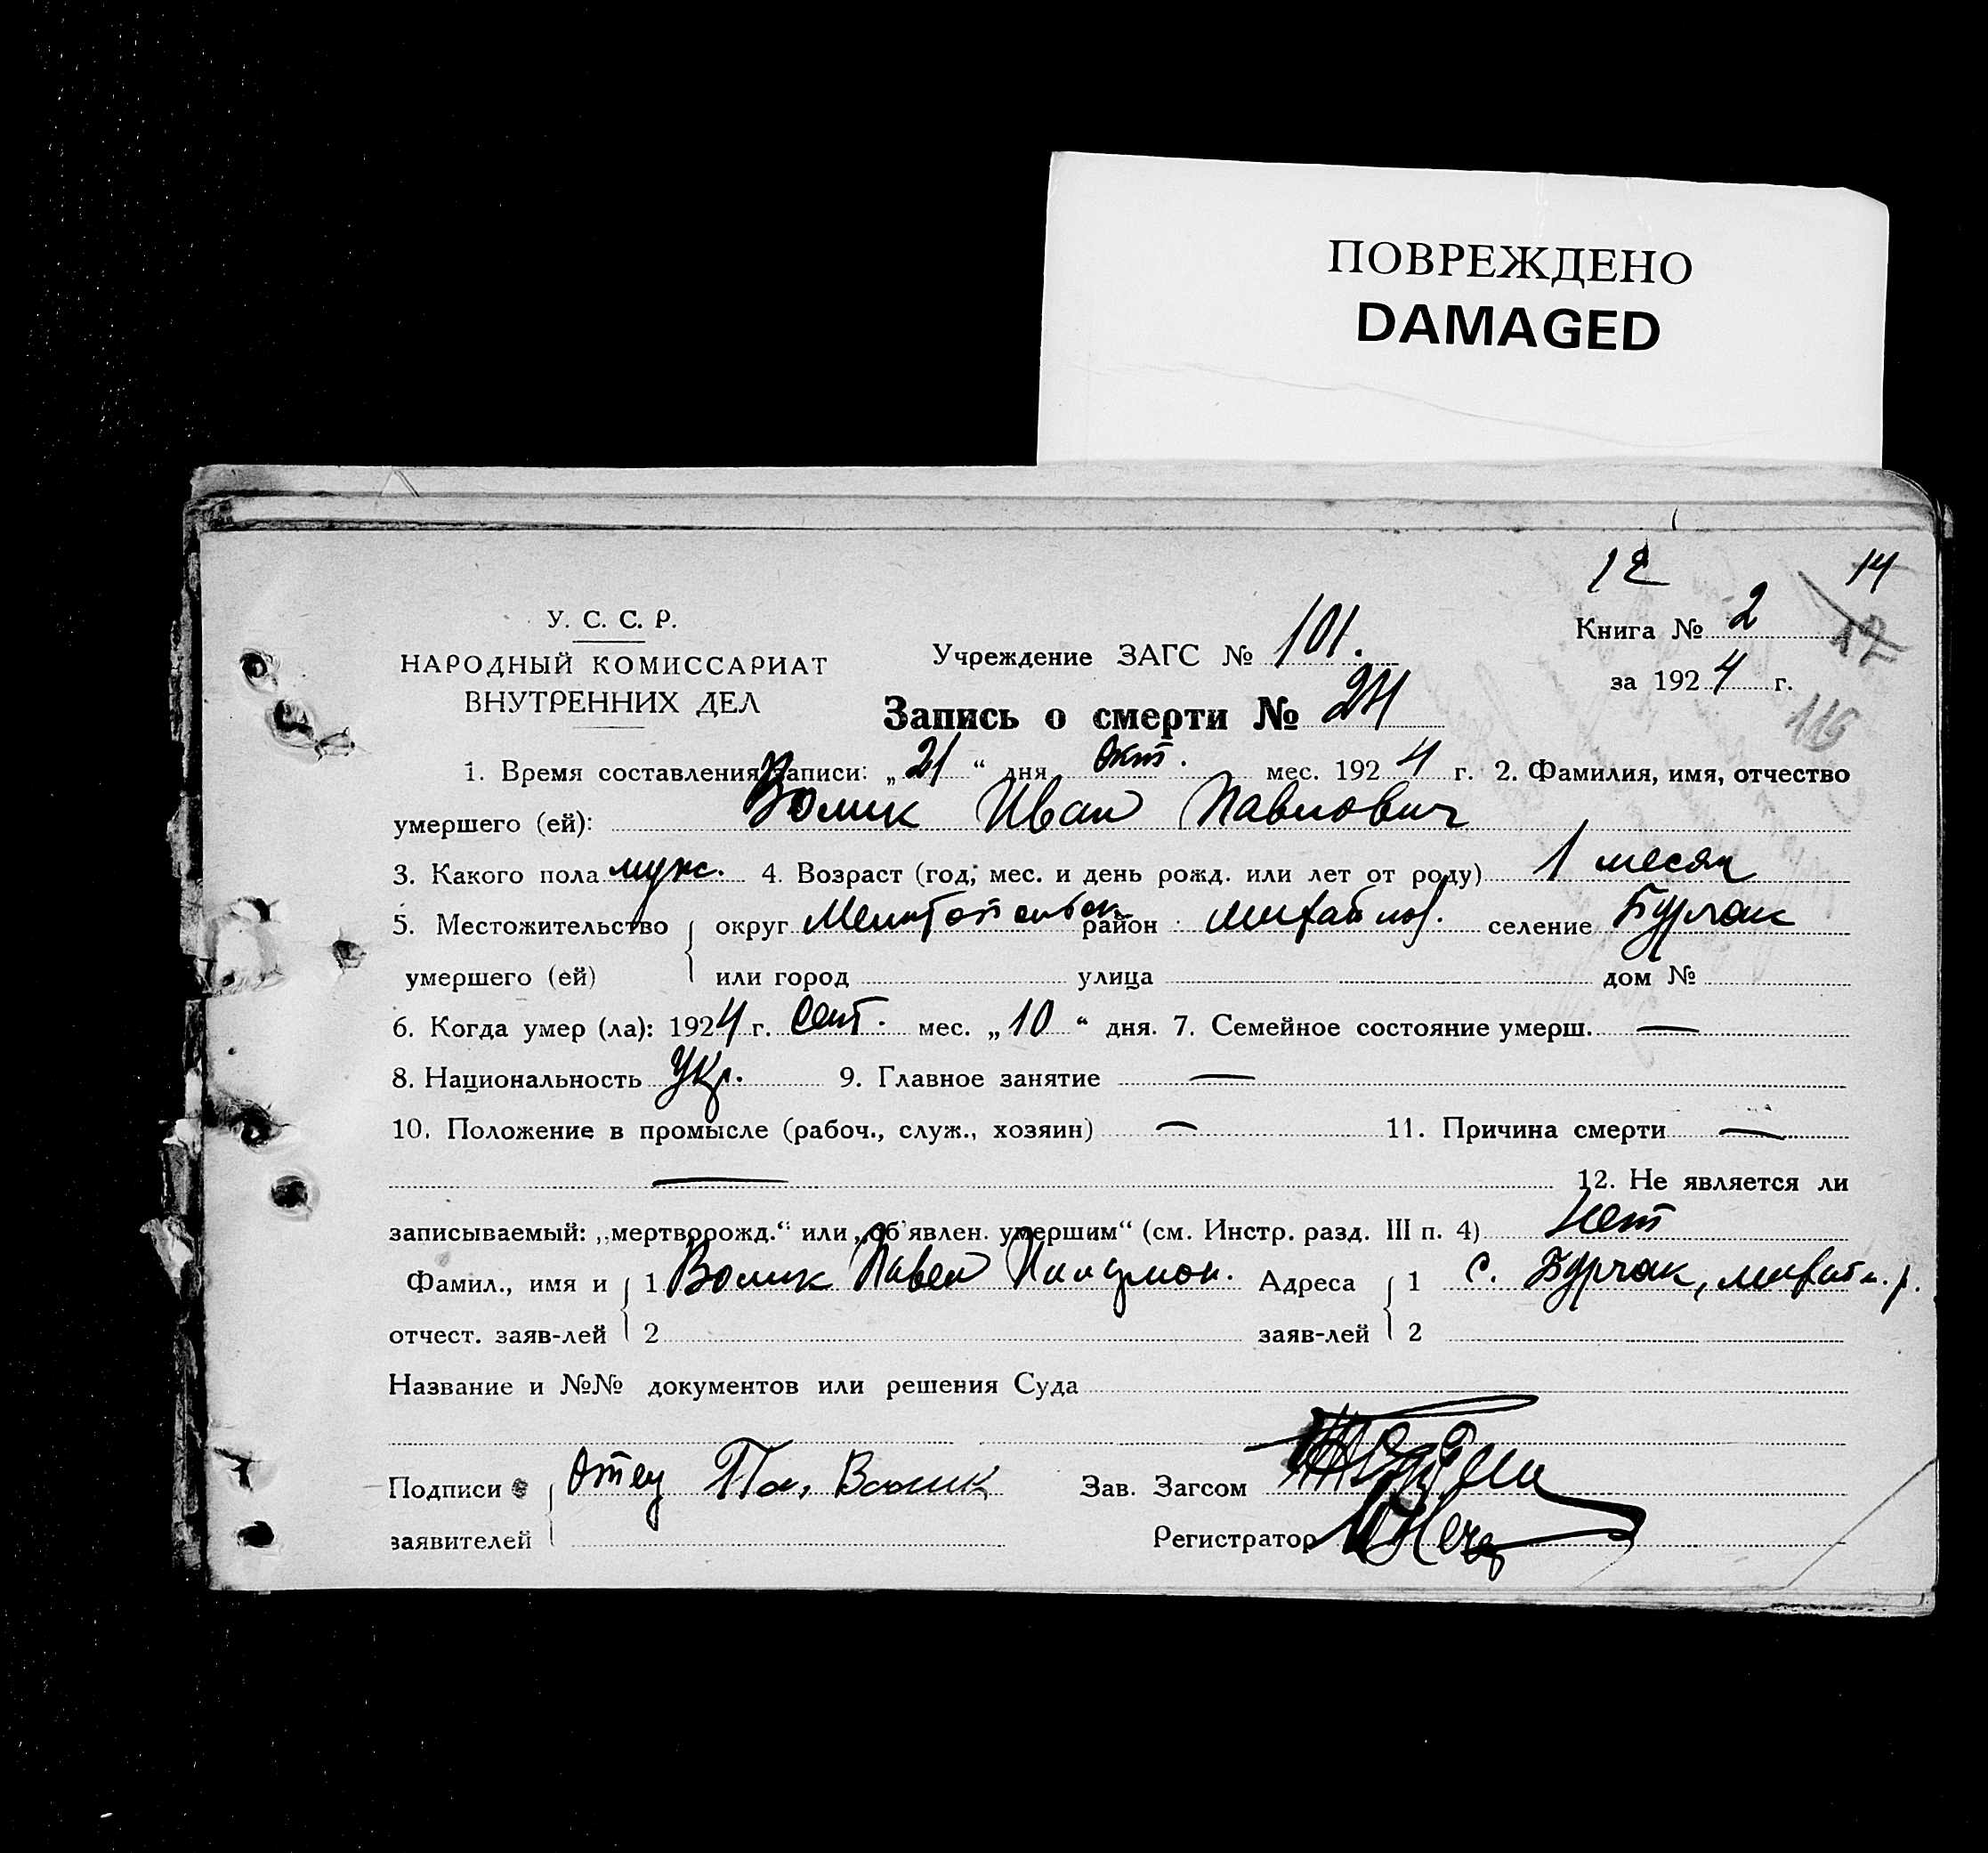 ПОВРЕЖДЕНО
DAMAGED
12 14
У. С. С. Р.
НАРОДНЫЙ КОМИССАРИАТ
ВНУТРЕННИХ ДЕЛ
Учреждение ЗАГС № 101.
Книга № 2 17
за 1924 г.
115
Запись о смерти № 24
1. Время составления записи: „21“ дня окт. мес. 1924 г. 2. Фамилия, имя, отчество
умершего (ей): Волик Иван Павлович
3. Какого пола муж. 4. Возраст (год, мес. и день рожд. или лет от роду) 1 месяц
5. Местожительство округ Мелитопольск район Михайлов. селение Бурчак
умершего (ей) или город улица дом №
6. Когда умер (ла): 1924 г. Сент. мес. „10“ дня. 7. Семейное состояние умерш. —
8. Национальность Укр. 9. Главное занятие —
10. Положение в промысле (рабоч., служ., хозяин) — 11. Причина смерти —
— 12. Не является ли
записываемый: „мертворожд.“ или „об'явлен. умершим“ (см. Инстр. разд. III п. 4) Нет
Фамил., имя и 1 Волик Павел Адреса 1 с. Бурчак, Михайл. р.
отчест. заяв-лей 2 заяв-лей 2
Название и №№ документов или решения Суда
Подписи Отец Па. Волик Зав. Загсом
заявителей Регистратор